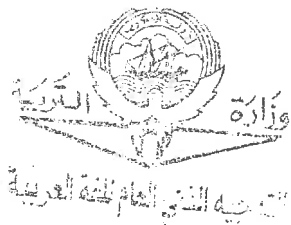 وزارة التربية
التوجيه الفني العام للغة العربية